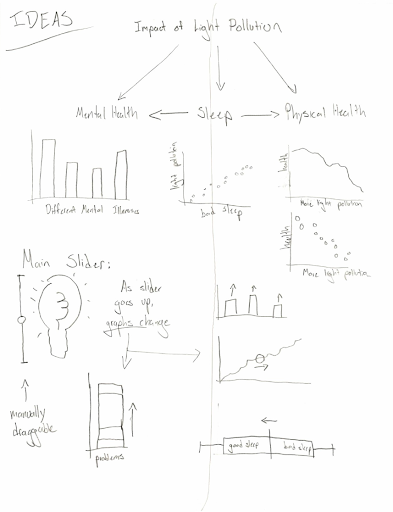 IDEAS
Impact of Light Pollution
Mental Health
Sleep
Physical Health
Different Mental Illnesses
light pollution
bad sleep
health
More light pollution
Health
More light pollution
Main Slider:
As slider
goes up,
graphs change
manually
draggable
problems
good sleep
bad sleep